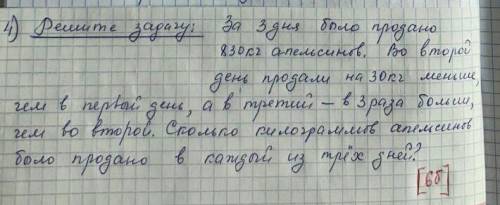 4) Решите задачу: За 3 дня было продано
830кг апельсинов. Во второй
день продали на 30кг меньше,
чем в первый день, а в третий – в 3 раза больш,
чем во второй. Сколько килограммов апельсинов
было продано в каждый из трёх дней?
[6б]